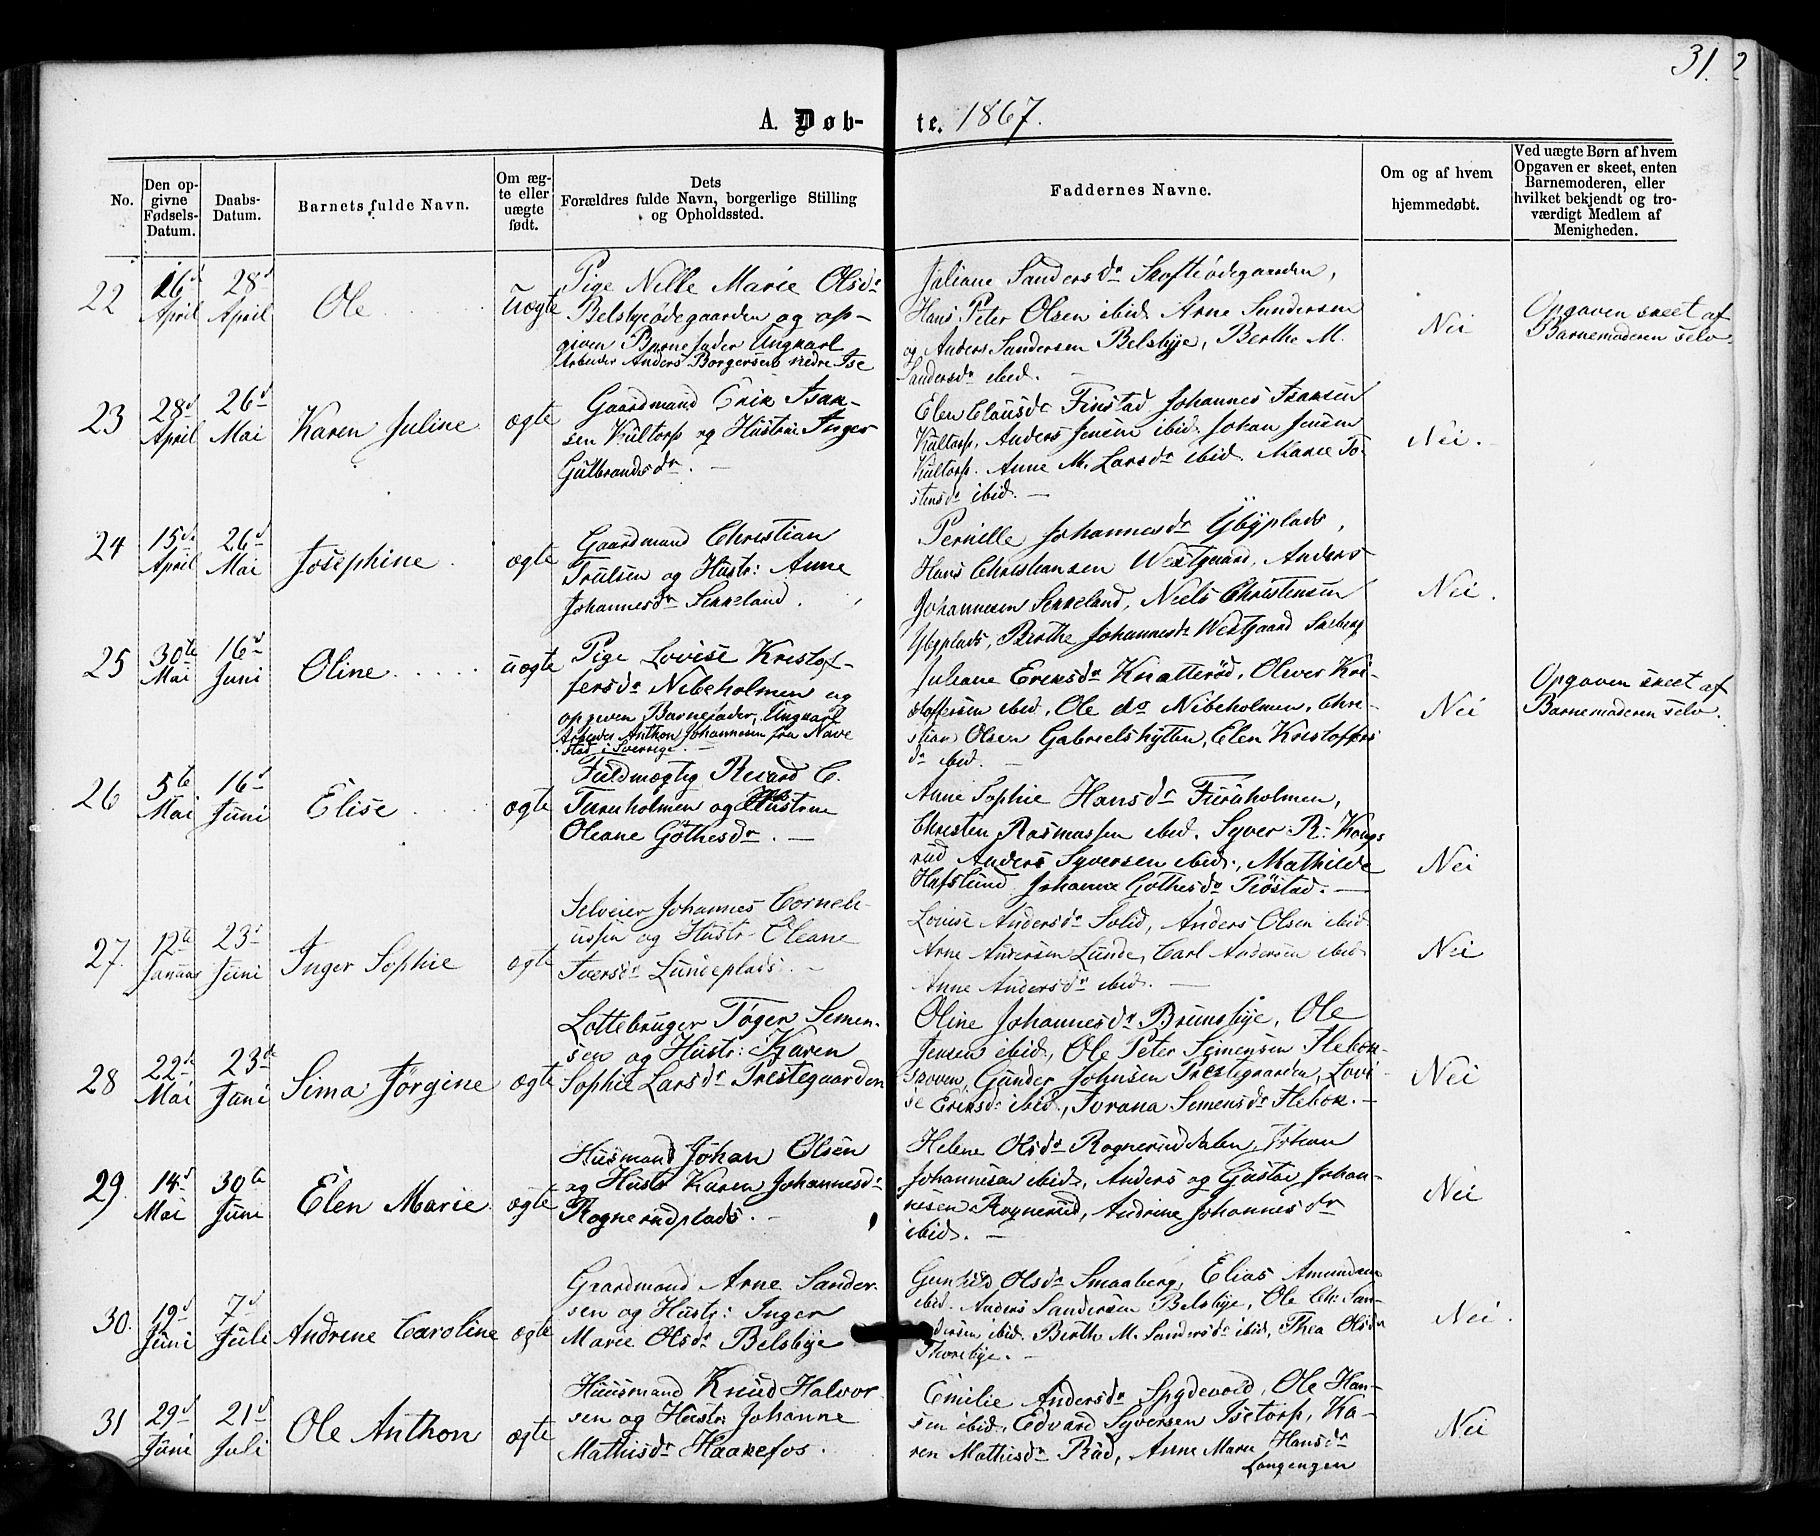 31.
A. Døb- te. 1867.
No.
Den op-
givne
Fødsels-
Datum.
Daabs-
Datum.
Barnets fulde Navn.
Om æg-
te eller
uægte
født.
Dets
Forældres fulde Navn, borgerlige Stilling
og Opholdssted.
Faddernes Navne.
Om og af hvem
hjemmedøbt.
Ved uægte Børn af hvem
Opgaven er skeet, enten
Barnemoderen, eller
hvilket bekjendt og tro-
værdigt Medlem af
Menigheden.
22
April
28d
April
Ole
Uægte
Pige Nille Marie Olsdr
Belsbyeødegaarden og op-
given Barnefader Ungkarl
Arbeider Anders Borgersen nedre Ise
Juliane Sandersdr Skofteødegaarden,
Hans Peter Olsen ibid. Arne Sandersen
og Anders Sandersen Belsbye, Berthe M.
Sandersdr ibid.
Nei
Opgaven skeet af
Barnemoderen selv.
23
28d
April
26d
Mai
Karen Juline
ægte
Gaardmand Erik Isak-
sen Kultorp og Hustrue Inger
Gulbrandsdr. –
Elen Clausdr Finstad Johannes Isaksen
Kultorp, Anders Jensen ibid. Johan Jensen
Kultorp. Anne M. Larsdr ibid. Marie To-
stensdr ibid. –
Nei.
24
15d
April
26d
Mai
Josephine
ægte
Gaardmand Christian
Trulsen og Hustr: Anne
Johannesdr Sekkeland.
Pernille Johannesdr Ybyplads,
Hans Christiansen Westgaard, Anders
Johannesen Sekkeland, Niels Christensen
Ybyplads, Berthe Johannesdr Westgaard
Nei.
25
30te
Mai
16d
Juni
Oline
uægte
Pige Lovise Kristof-
fersdr Nibeholmen og
opgiven Barnefader, Ungkarl
Arbeider Anthon Johannesen fra Nave
stad i Sverrige. –
Juliane Eriksdr Knatterød, Oliver Kri-
stoffersen ibid, Ole do Nibeholmen, Chri-
stian Olsen Gabrielshytten, Elen Kristoffers
dr ibid. –
Nei
Opgaven skeet af
Barnemoderen selv.
26
5te
Mai
16d
Juni
Elise
ægte
Fuldmægtig Rikard C.
Furuholmen og Hustrue
Oleane Göthesdr. –
Anne Sophie Hansdr Furuholmen,
Christen Rasmussen ibid. Syver R. Kongs
rud Anders Syversen ibid., Mathilde
Hafslund Johanne Gothesdr Tiøstad. –
Nei
27.
12te
Januar
23d
Juni
Inger Sophie
ægte
Selveier Johannes Corneli-
ussen og Hustr Oleane
Iversdr Lundeplads. –
Louise Andersdr Solid, Anders Olsen ibid
Arne Andersen Lunde, Carl Andersen ibid
Anne Andersdr ibid. –
Nei
28
22de
Mai
23de
Juni
Sima Jørgine
ægte
Lottebruger Töger Semen-
sen og Hustr: Karen
Sophie Larsdr Prestegaarden
Oline Johannesdr Brunsbye, Ole
Jensen ibid, Ole Peter Simensen Flebok-
skoven, Gunder Johnsen Prestegaarden, Lovi-
se Eriksdr ibid, Torana Semensdr Flebok. –
Nei
29.
14d
Mai
30te
Juni
Elen Marie
ægte
Husmand Johan Olsen
og Hustr Karen Johannesdr
Rognerudplads. –
Helene Olsdr Rognerud dalen, Johan
Johannesen ibid, Anders og Gustav Johan-
nesen Rognerud, Andrine Johannesdr
ibid. –
Nei
30.
19d
Juni
7d
Juli
Andrine Caroline
ægte
Gaardmand Arne Sander-
sen og Hustr: Inger
Marie Olsdr Belsbye
Gunhild Olsdr Smaaberg, Elias Amundsen
ibid. Anders Sandersen Belsbye, Ole Ch: San-
dersen ibid. Berthe M. Sandersdr ibid, Thea Olsdr
Thorebye. –
Nei.
31
29d
Juni
21d
Juli
Ole Anthon
ægte
Huusmand Knud Halvor-
sen og Hustr: Johanne
Mathisdr Haakefos.
Emilie Andersdr Spydevold, Ole Han-
sen ibid, Edvard Syversen Isetorp, Ka-
ren Mathisdr Rød, Anne Marie Hansdr
Langengen
Nei